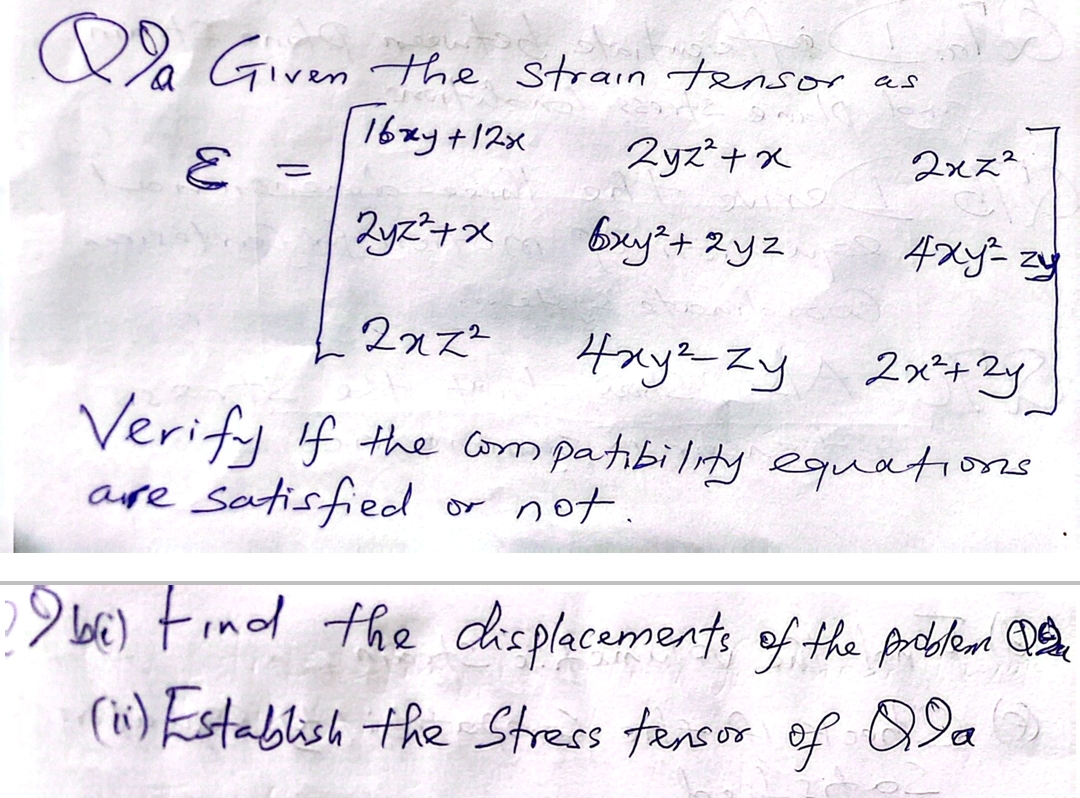 Q9a Given the strain tensor as
ε = [16xy+12x 2yz²+x 2xz²
2yz²+x 6xy²+2yz 4xy²-zy
2xz² 4xy²-zy 2x²+2y]
Verify if the compatibility equations
are satisfied or not.
9b(i) Find the displacements of the problem
(ii) Establish the Stress tensor of Q9a